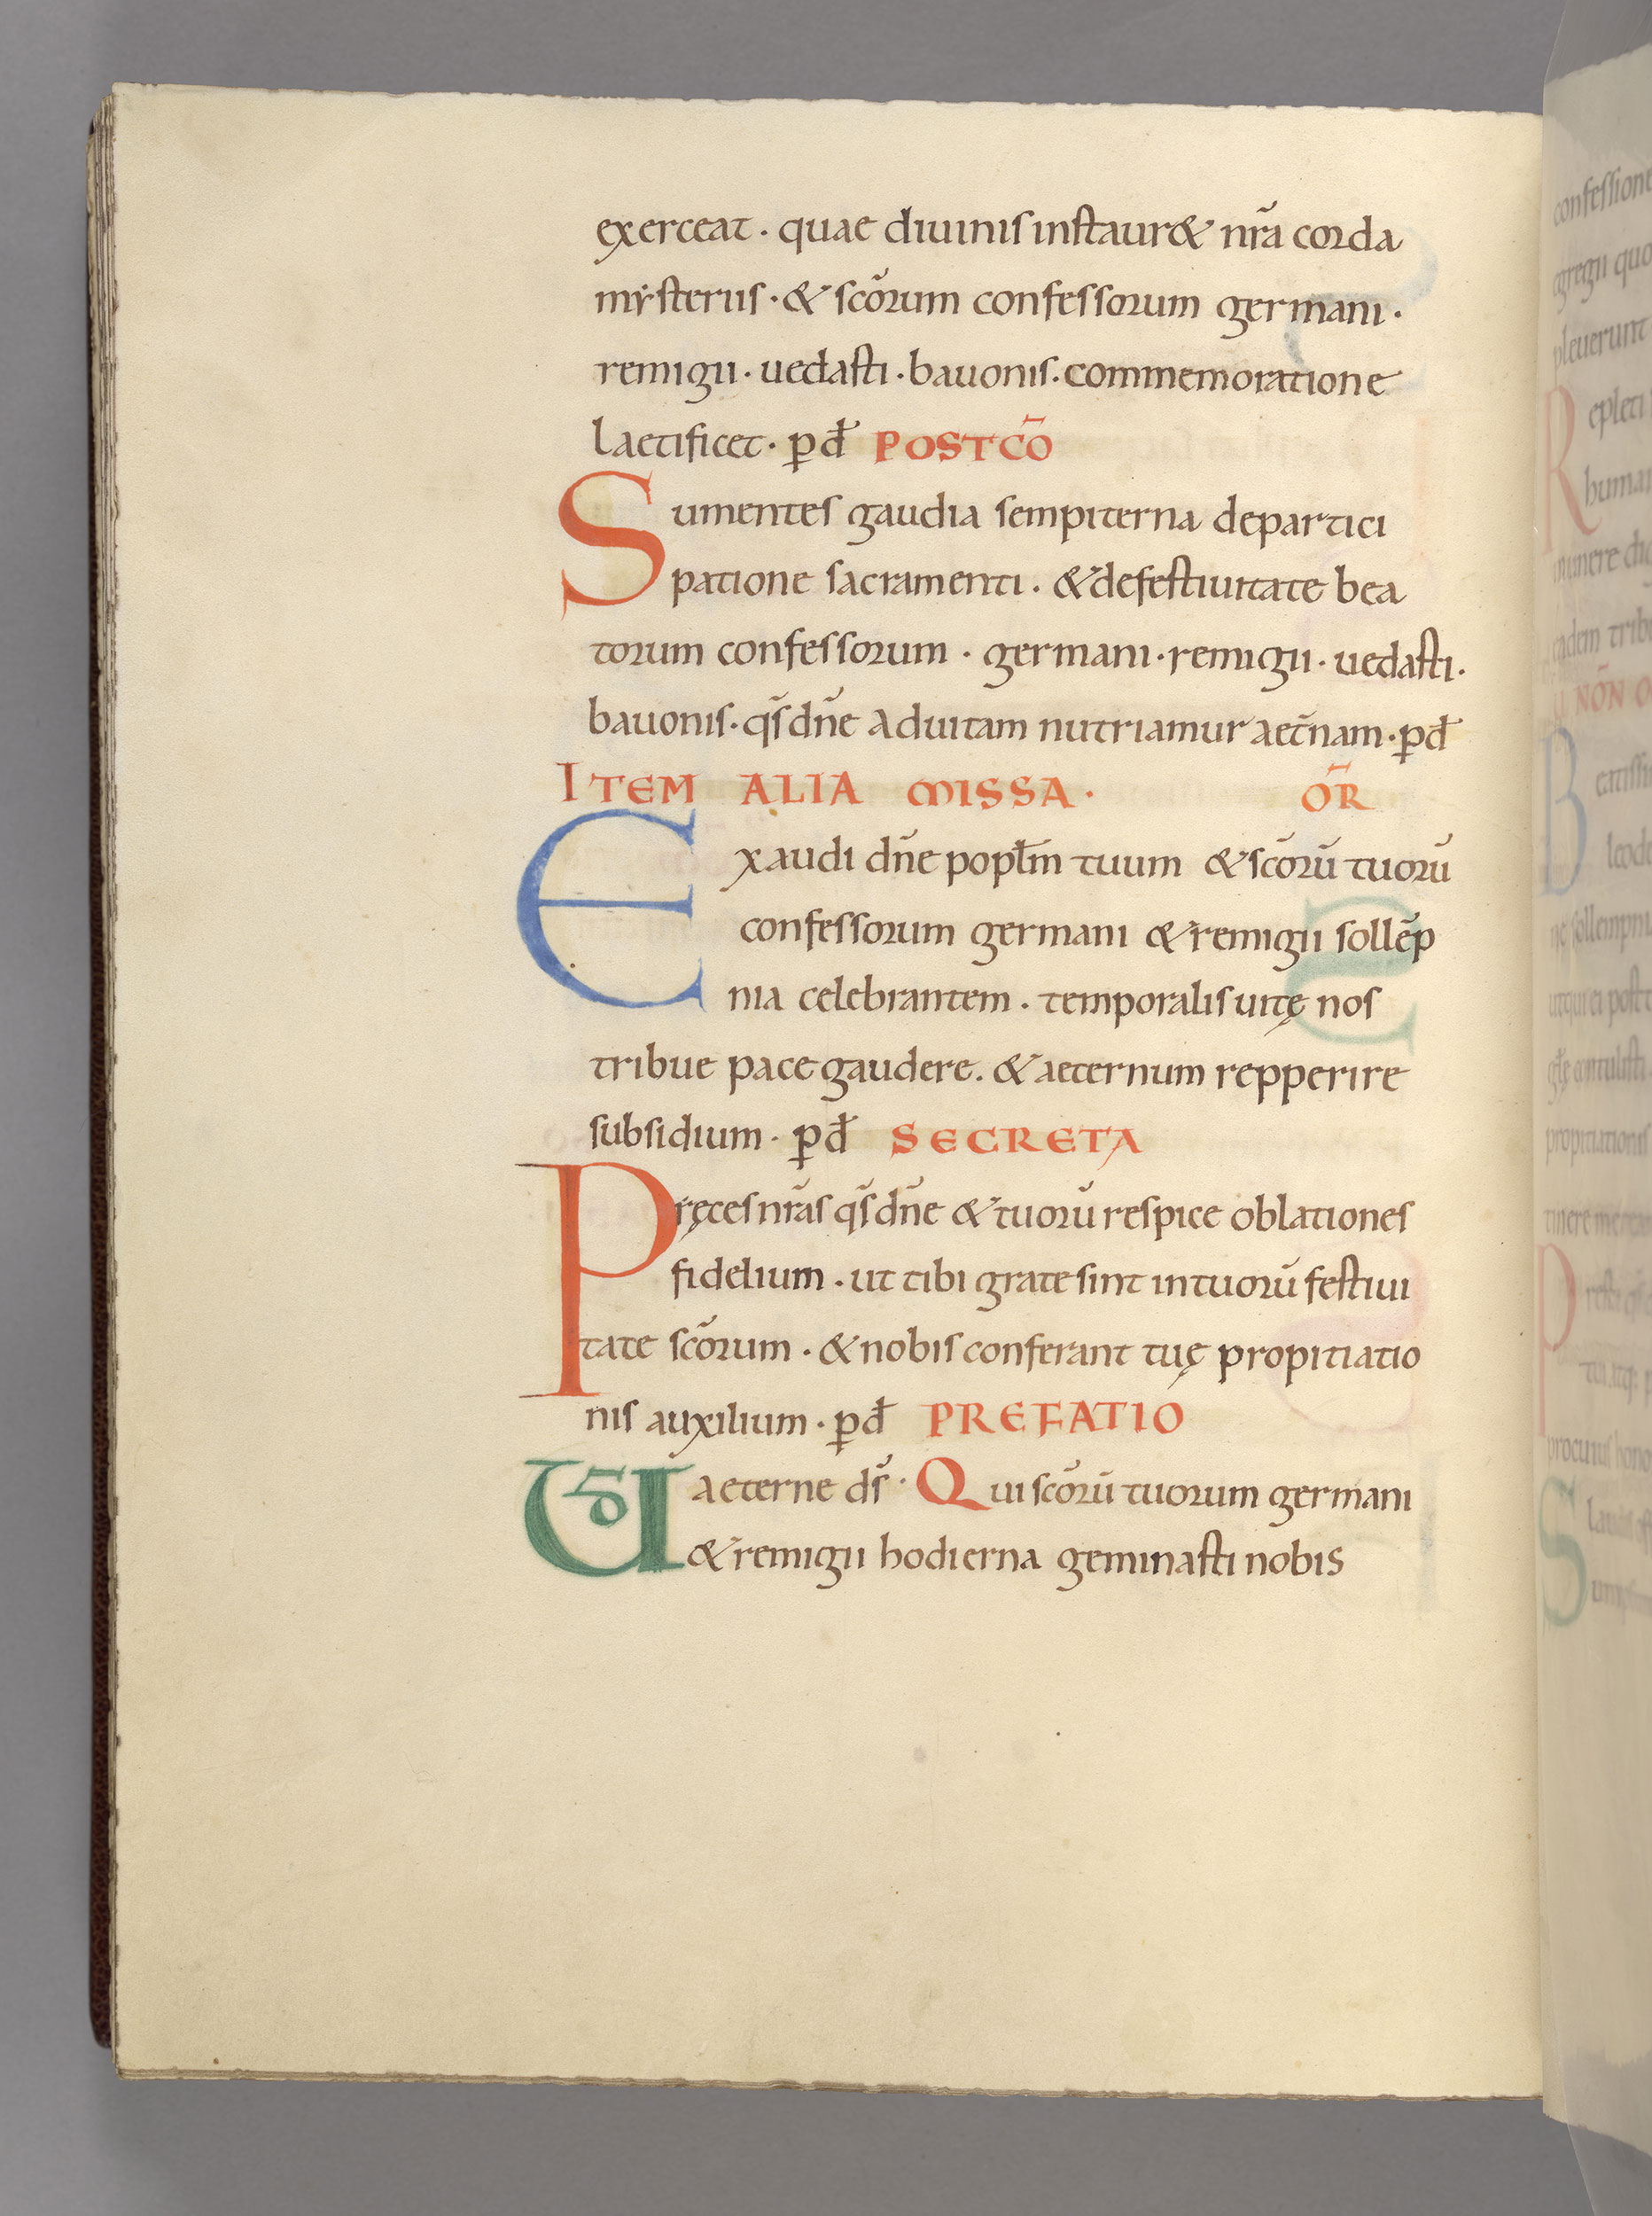 exerceat · quae diuinis instaur& nr̃a corda
mẏsteriis · & scõrum confessorum germani ·
remigii · uedasti · bauonis · commemoratione
laetificet · p̲ đ POSTCŌ
Sumentes gaudia sempiterna departici
patione sacramenti · & defestiuitate bea
torum confessorum · germani · remigii · uedasti ·
bauonis · qs̃ dñe aduitam nutriamur aet̃nam · p̲ đ
ITEM ALIA MISSA · OR̃
Exaudi dñe popl̃m tuum & scõrũ tuorũ
confessorum germani & remigii sollẽp
nia celebrantem · temporalis uitę nos
tribue pace gaudere. & aeternum repperire
subsidium · p̲ đ SECRETA
Pręces nr̃as qs̃ dñe & tuorũ respice oblationes
fidelium · ut tibi grate sint in tuorũ festiui
tate scõrum · & nobis conferant tuę propitiatio
nis auxilium · p̲ đ PREFATIO
UD aeterne ds̃ · Qui scõrũ tuorum germani
& remigii hodierna geminasti nobis
confessione
egregii quo
pleuerunt
Repleti
human
munere
eadem trib
NON O
Beatissi
leode
sollempni
propitiationis
P
S